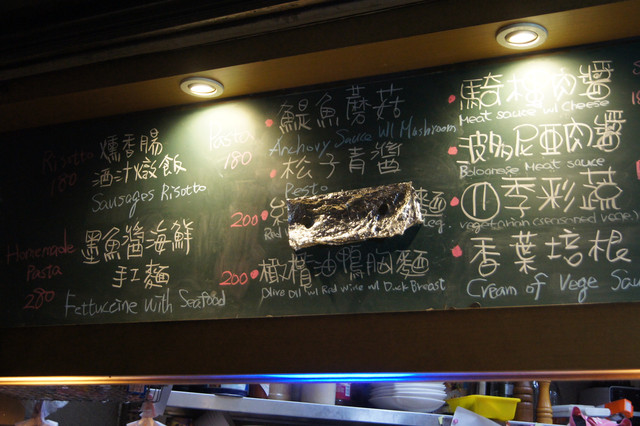 Risotto
180
燻香腸
酒汁燉飯
Sausages Risotto
Homemade
Pasta
280
墨魚醬海鮮
手工麵
Fettuccine with Seafood
Pasta
180
鯷魚蘑菇
Anchovy Sauce w/ Mushroom
松子青醬
Pesto
200
麵
200
橄欖油鴨胸麵
Olive Oil w/ Red Wine w/ Duck Breast
肉醬
Meat sauce w/ Cheese
波多尼亞肉醬
Bolognese Meat sauce
季彩蔬
vegetarian
香葉培根
Cream of Vege